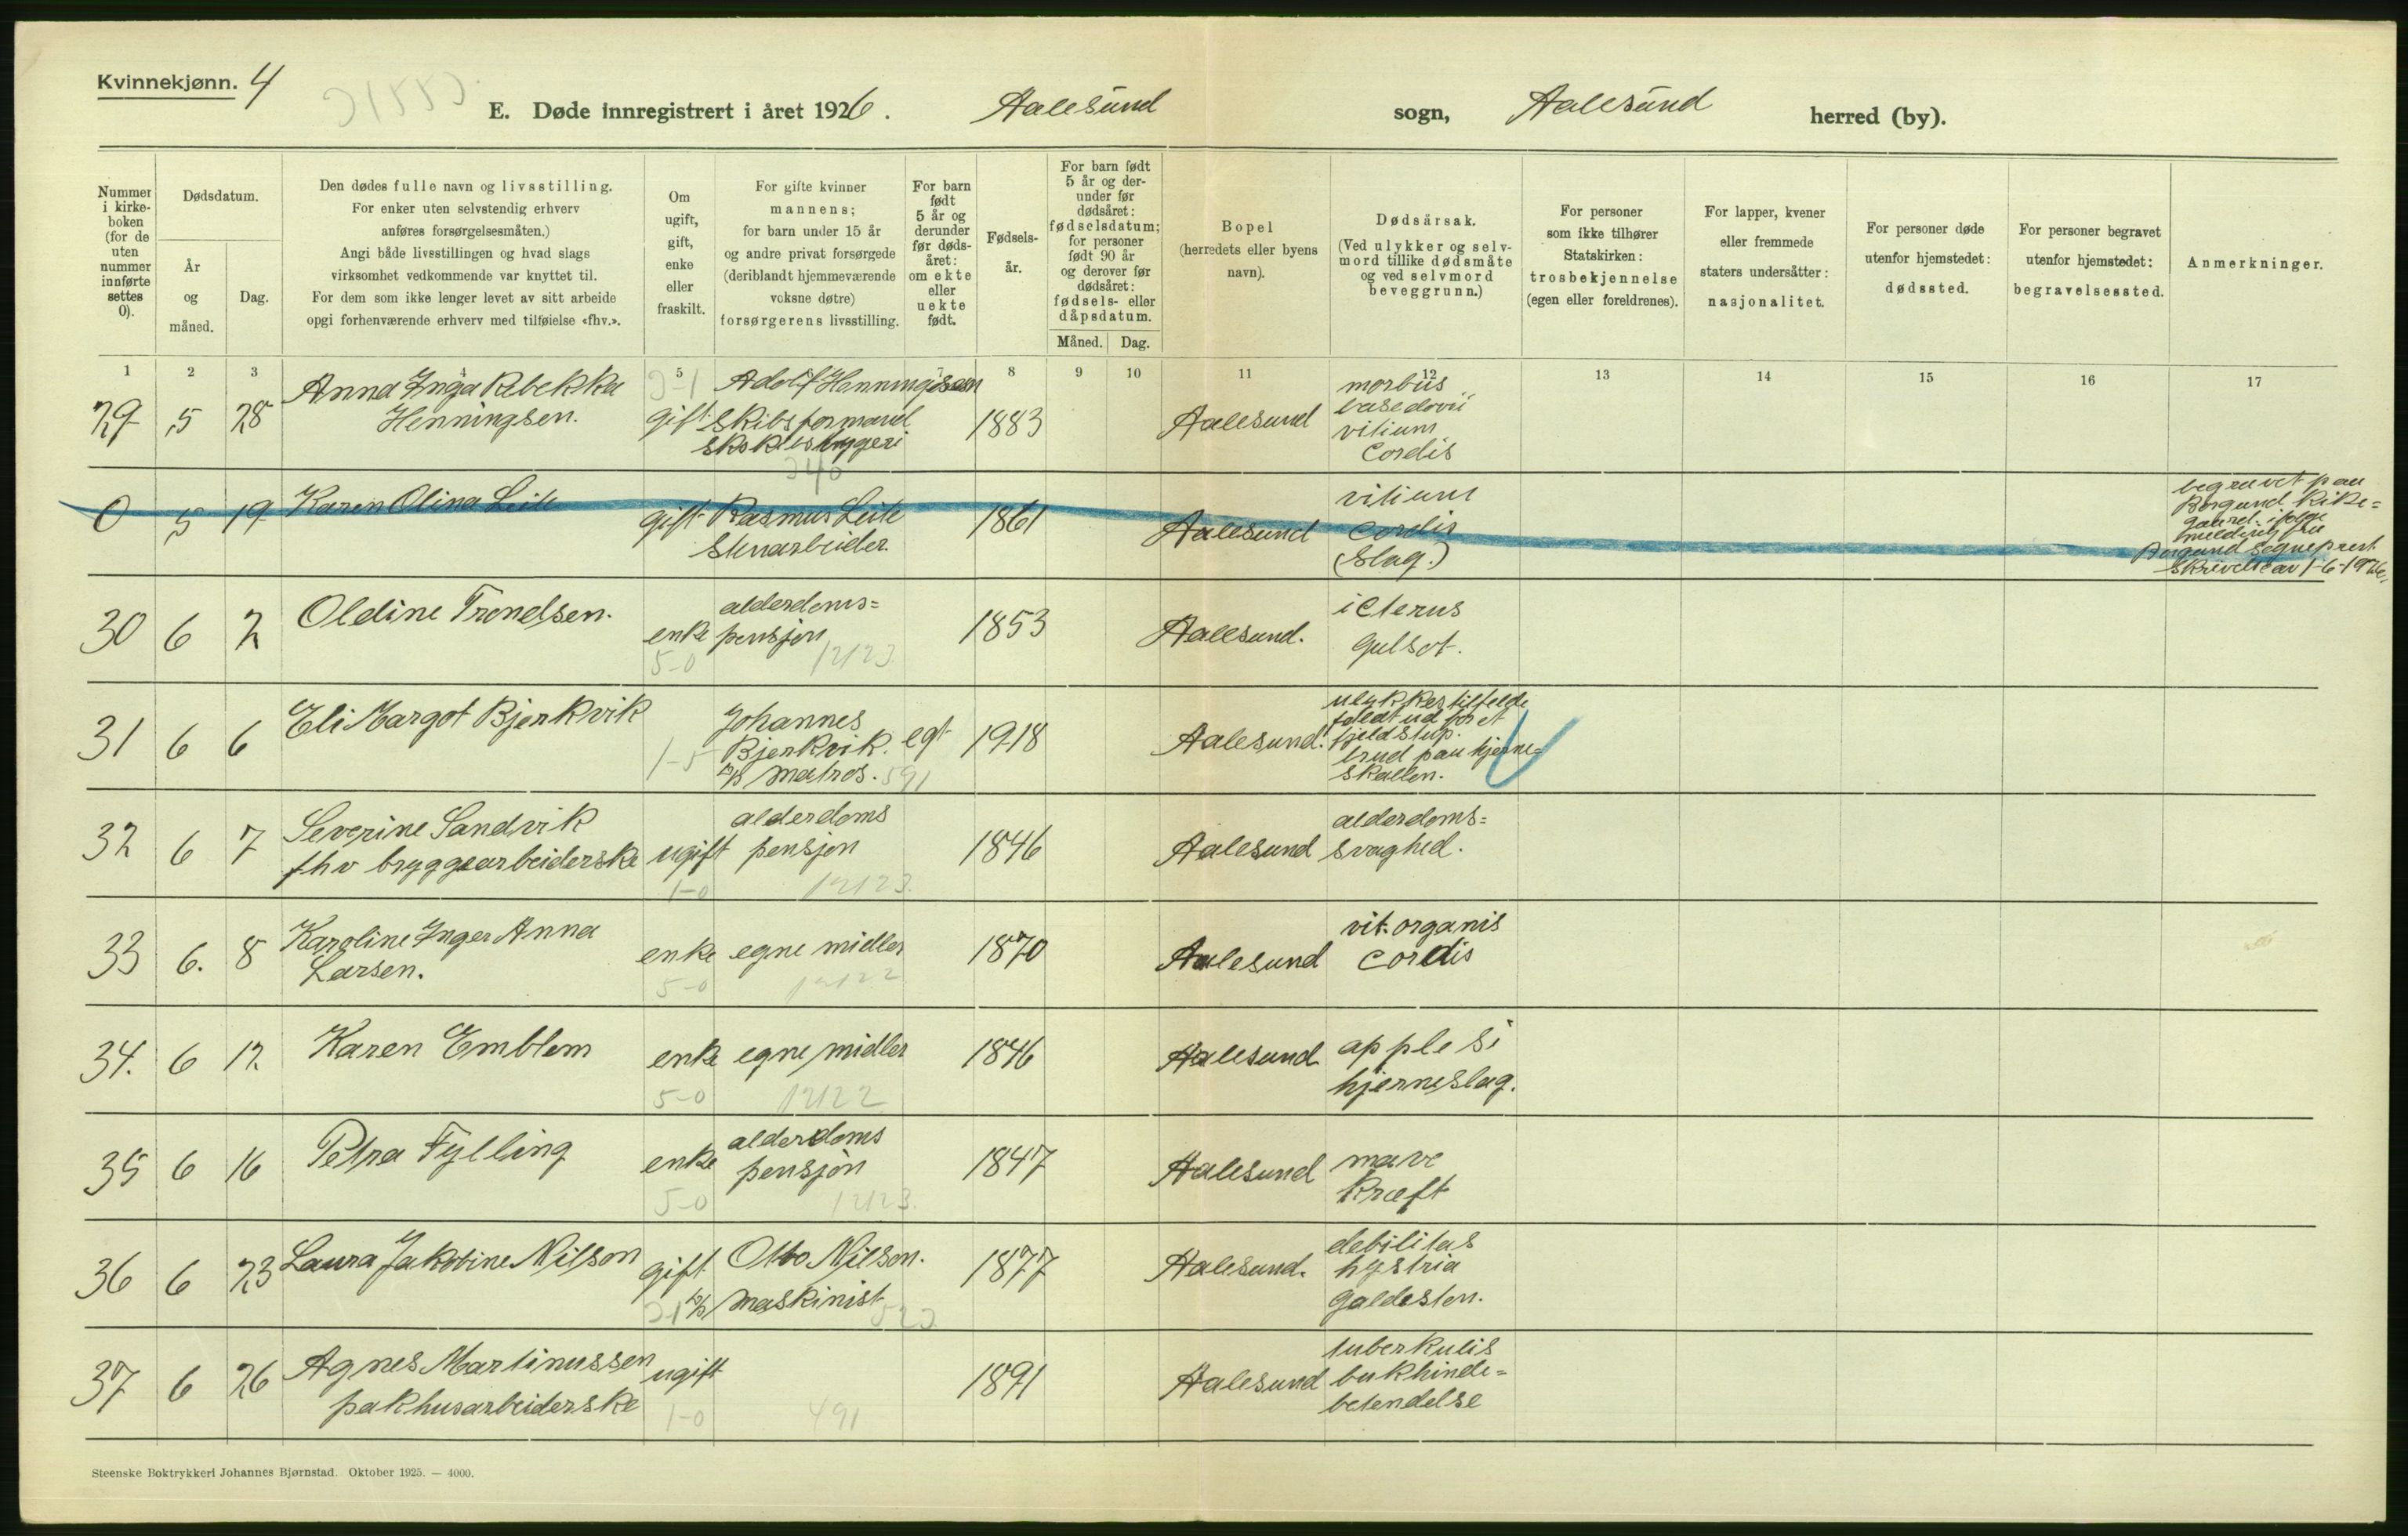 Kvinnekjønn. 4
E. Døde innregistrert i året 1926. Aalesund sogn, Aalesund herred (by).
Nummer i kirke-boken (for de uten nummer innførte settes 0).
Dødsdatum.
År og måned.
Dag.
Den dødes fulle navn og livsstilling.
For enker uten selvstendig erhverv
anføres forsørgelsesmåten.)
Angi både livsstillingen og hvad slags
virksomhet vedkommende var knyttet til.
For dem som ikke lenger levet av sitt arbeide
opgi forhenværende erhverv med tilføielse «fhv.».
Om ugift, gift, enke eller fraskilt.
For gifte kvinner
mannens;
for barn under 15 år
og andre privat forsørgede
(deriblandt hjemmeværende
voksne døtre)
forsørgerens livsstilling.
For barn født 5 år og derunder før døds-året: om ekte eller uekte født.
Fødsels-år.
For barn født 5 år og der-under før dødsåret: fødselsdatum; for personer født 90 år og derover før dødsåret: fødsels- eller dåpsdatum.
Måned. Dag.
Bopel
(herredets eller byens
navn).
Dødsårsak.
(Ved ulykker og selv-
mord tillike dødsmåte
og ved selvmord
beveggrunn.)
For personer
som ikke tilhører
Statskirken:
trosbekjennelse
(egen eller foreldrenes).
For lapper, kvener
eller fremmede
staters undersåtter:
nasjonalitet.
For personer døde
utenfor hjemstedet:
dødssted.
For personer begravet
utenfor hjemstedet:
begravelsessted.
Anmerkninger.
1 2 3 4 5 6 7 8 9 10 11 12 13 14 15 16 17
29 5 28 Anna Inga Rebekka Henningsen. gift Adolf Henningsen skibsformand 1883 Aalesund morbus basedovii vitium Cordis
240
0 5 19 Karen Olina Leite gift Rasmus Leite Stenarbeider. 1861 Aalesund vitium Cordis (Slag.) begravet paa Borgund Kirke= gaard. ifølge melding fra Borgund Sogneprest skrivelse av 1-6-1926.
30 6 2 Oldine Tronelsen. enke alderdoms= pensjon 1853 Aalesund. icterus gulsot.
5-0 12123
31 6 6 Eli Margot Bjerkvik Johannes Bjerkvik. D/S matros. egt 1918 Aalesund. ulykkestilfelde faldt ud for et fjeldstup. brud paa hjerne= skallen.
1-5 591
32 6 7 Severine Sandvik fhv bryggearbeiderske ugift alderdoms pensjon 1846 Aalesund alderdoms= svaghed.
1-0 12123.
33 6. 8 Karoline Inger Anna Larsen. enke egne midler 1870 Aalesund vit. organis Cordis
5-0 12122
34. 6 12. Karen Emblem enke egne midler 1846 Aalesund applesi hjerneslag.
5-0 12122
35 6 16 Petra Fylling enke alderdoms pensjon 1847 Aalesund mave kræft
5-0 12123.
36 6 23 Laura Jakobine Nilson gift Otto Nilson. D/S maskinist 1877 Aalesund. debilitas hystria galdesten.
37 6 26 Agnes Martinussen pakhusarbeiderske ugift 1891 Aalesund tuberkulis bukhinde= betendelse
1-0 491
Steenske Boktrykkeri Johannes Bjørnstad. Oktober 1925. — 4000.